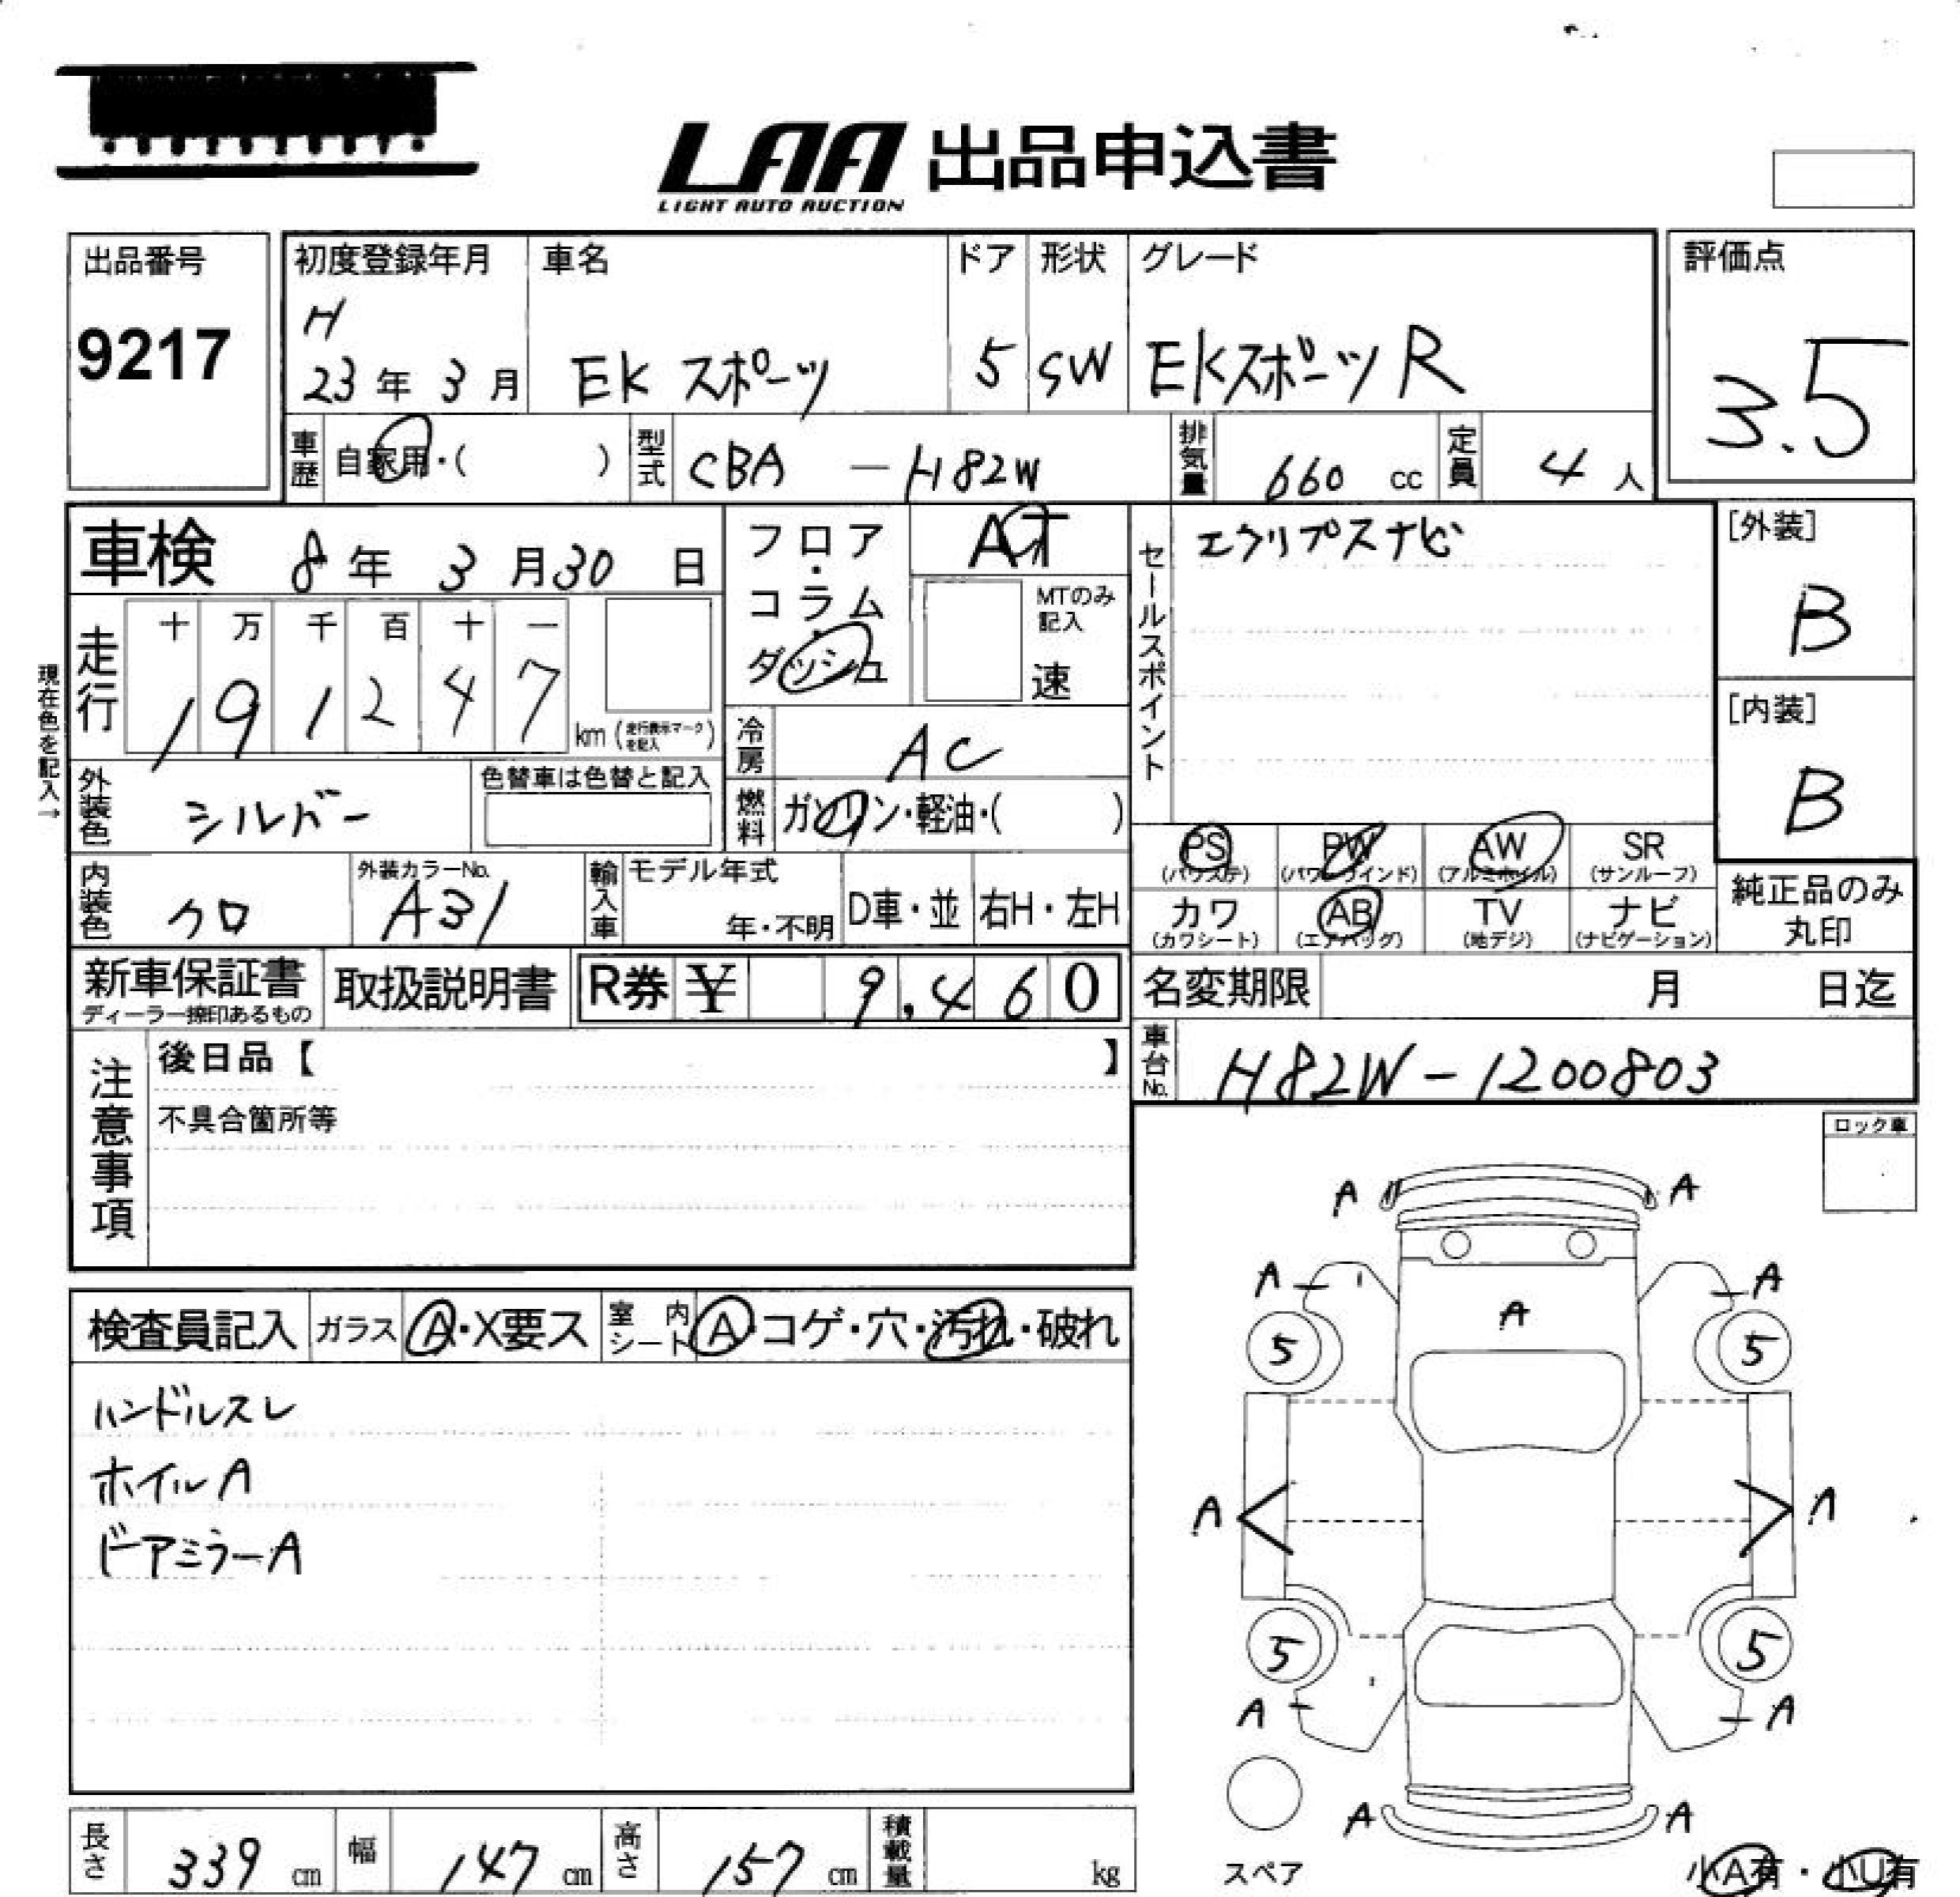 LAA 出品申込書
LIGHT AUTO AUCTION
出品番号
9217
初度登録年月
H
23年 3月
車名
EK スポーツ
ドア
5
形状
SW
グレード
EKスポーツ R
評価点
3.5
車歴
自家用・( )
型式
CBA - H82W
排気量
660 cc
定員
4 人
車検 8年 3月30日
フロア・コラム・ダッシュ
AT
MTのみ記入
速
セールスポイント
エクリプスナビ
[外装]
B
[内装]
B
現在色を記入→
走行
十 万 千 百 十 一
1 9 1 2 4 7
km (走行表示マークを記入)
冷房
AC
外装色
シルバー
色替車は色替と記入
燃料
ガソリン・軽油・( )
PS (パワステ)
PW (パワーウインド)
AW (アルミホイル)
SR (サンルーフ)
内装色
クロ
外装カラーNo.
A31
輸入車
モデル年式
年・不明
D車・並
右H・左H
カワ (カワシート)
AB (エアバッグ)
TV (地デジ)
ナビ (ナビゲーション)
純正品のみ丸印
新車保証書
ディーラー捺印あるもの
取扱説明書
R券 ¥ 9,460
名変期限 月 日迄
車台No.
H82W-1200803
注意事項
後日品【 】
不具合箇所等
ロック車
検査員記入
ガラス A・X要ス
室内シート A・コゲ・穴・汚れ・破れ
ハンドルスレ
ホイルA
ドアミラーA
A A
A A
A
5 5
A A
5 5
A A
A A
スペア
小A有・小U有
長さ 339 cm
幅 147 cm
高さ 157 cm
積載量 kg